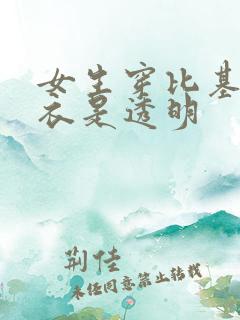 女生穿比基
衣是透明
荆佳
未经同意禁止转载